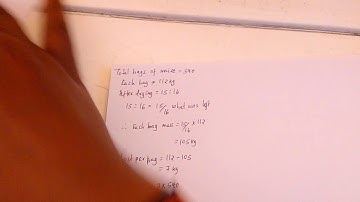 Total bags of maize = 540
Each bag = 112 kg
After drying = 15:16
15:16 = 15/16 what was left
∴ Each bag mass = 15/16 × 112
= 105 kg
per bag = 112 - 105
= 7 kg
7 × 540